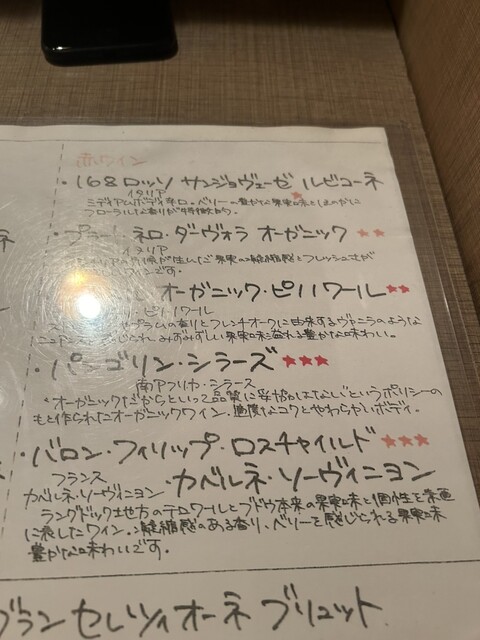 赤ワイン
・168ロッソ サンジョヴェーゼ ルビコーネ
イタリア
ミディアムボディ辛口。ベリーの豊かな果実味とほのかに
フローラルな香りが特徴的。
ネロ・ダーヴォラ オーガニック ★★
イタリア
が生んだ果実の凝縮感とフレッシュさが
ワインです。
オーガニック・ピノノワール ★★
ピノノワール
プラムの香りとフレンチオークに由来するヴァニラのような
みずみずしい果実味溢れる豊かな味わい。
・パンゴリン・シラーズ ★★★
南アフリカ・シラーズ
"オーガニックだからといって品質に妥協はなし"というポリシーの
もと作られたオーガニックワイン。適度なコクとやわらかいボディ。
・バロン・フィリップ・ロスチャイルド ★★★
フランス ・カベルネ・ソーヴィニヨン
カベルネ・ソーヴィニヨン
ラングドック地方のテロワールとブドウ本来の果実味と個性を
に表したワイン。凝縮感のある香り、ベリーを感じられる果実味
豊かな味わいです。
ブラン セレツィオーネ ブリュット